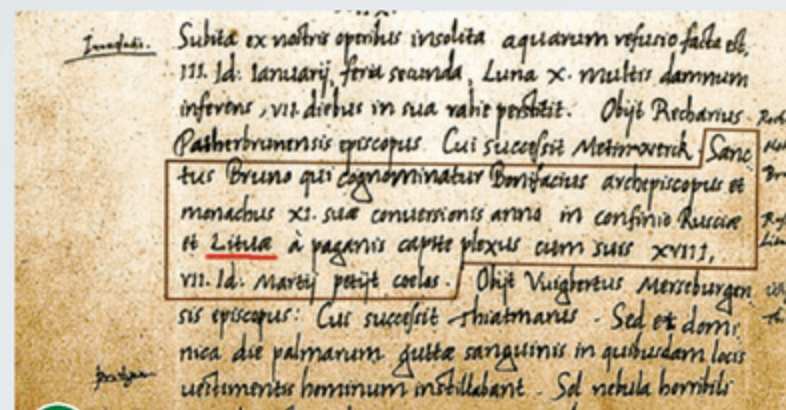 Inundatio.
Subita ex nostris operibus insolita aquarum refusio facta est,
III. Id: Ianuarij, feria secunda, Luna X. multis damnum
inferens, VII. diebus in sua rabie perstitit. Obijt Recharius
Patherbrunensis episcopus. Cui successit Meinwerck. Sanc
tus Bruno qui cognominatur Bonifacius archiepiscopus et
monachus XI. suæ conversionis anno in confinio Rusciæ
et Lituæ à paganis capite plexus cum suis XVIII,
VII. Id: Martij petijt coelos. Obijt Vuigbertus Merseburgen
sis episcopus: Cui successit Thiatmarus. Sed et domi
nica die palmarum guttæ sanguinis in quibusdam locis
vestimentis hominum instillabant. Sol nebula horribili